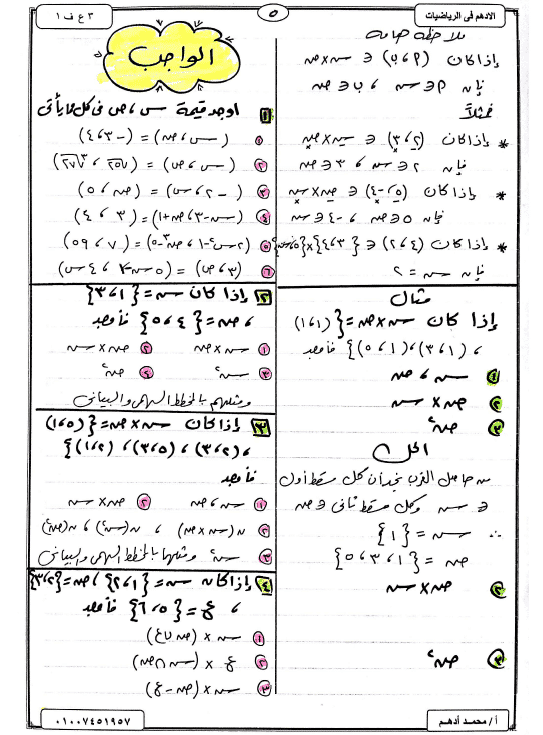 الأدهم فى الرياضيات
٥
٣ ع ف ١
ملاحظة هامة
إذا كان (٩، ب) ∈ س × ص
فإن ٩ ∈ س ، ب ∈ ص
فمثلاً
* إذا كان (٢، ٣) ∈ س × ص
فإن ٢ ∈ س ، ٣ ∈ ص
* إذا كان (٥، -٤) ∈ ص × س
فإن ٥ ∈ ص ، -٤ ∈ س
* إذا كان (٢، ٤) ∈ {٣، ٤} × {س، ٥}
فإن س = ٢
مثال
إذا كان س × ص = {(١، ١)
، (١، ٣)، (١، ٥)} فأوجد
١ س ، ص
٢ ص × س
٣ ص٢
الحل
من حاصل الضرب نجد أن كل مسقط أول
∈ س وكل مسقط ثانى ∈ ص
∴ س = {١}
ص = {١، ٣، ٥}
٢ ص × س
٣ ص٢
الواجب
١ اوجد قيمة س ، ص فى كل مما يأتى
١ (س ، ص) = (-٣، ٤)
٢ (س ، ص) = (√٢٥ ، ∛٢٧)
٣ (-٢، س) = (ص، ٥)
٤ (س-٣، ص+١) = (٣، ٤)
٥ (٢س-١، ص٣-٥) = (٧، ٥٩)
٦ (٣، ص)
٢ إذا كان س = {١، ٣}
، ص = {٤، ٥} فأوجد
١ س × ص ٢ ص × س
٣ س٢ ٤ ص٢
ومثلهم بالمخطط السهمى والبيانى
٣ إذا كان س × ص = {(٥، ١)
، (٢، ٣)، (٥، ٣)، (٢، ١)}
فأوجد
١ س ، ص ٢ ص × س
٢ ن(س × ص) ، ن(س٢) ، ن(ص٢)
٣ س٢ ومثلها بالمخطط السهمى والبيانى
٤ إذا كان س = {١، ٢} ، ص = {٢، ٣}
، ع = {٥، ٦} فأوجد
١ س × (ص ∪ ع)
٢ ع × (س ∩ ص)
٣ س × (ص - ع)
أ / محمد أدهم
٠١٠٠٧٤٥١٩٥٧